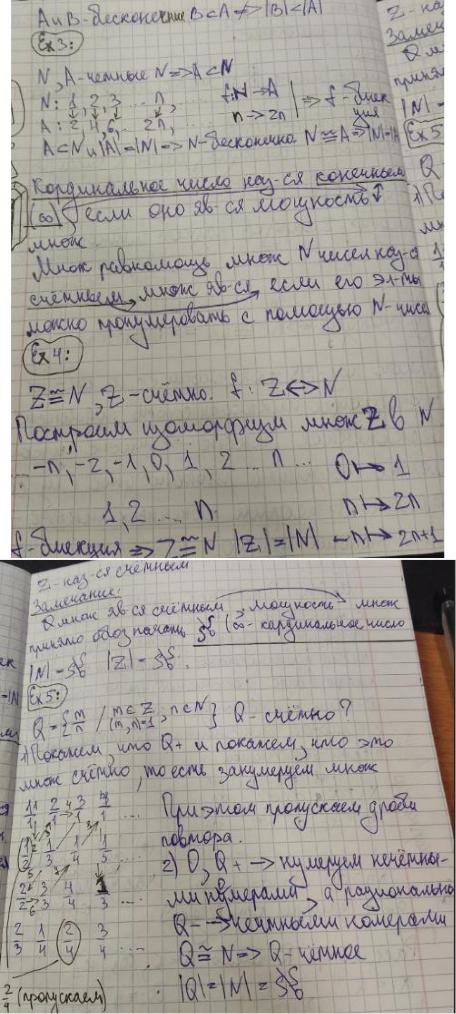 A и B-бесконечные B⊂A ≠> |B|<|A|
Ex3:
N, A-чётные N => A⊂N
N: 1, 2, 3 ... n, ... f: N → A
A: 2, 4, 6, ... 2n, ... n → 2n => f - биек
ция
A⊂N и |A|=|N| => N-бесконечна N≅A => |N|=|A|
Кординальное число наз-ся конечным
(∞) если оно яв-ся мощность
множ.
Множ равномощь множ N чисел наз-ся
счётным, множ яв-ся, если его эл-ты
можно пронумеровать с помощью N-чисел
Ex4:
Z≅N, Z-счётно. f: Z<->N
Построим изоморфизм множ Z в N
... -n, -2, -1, 0, 1, 2 ... n ... 0 ↦ 1
1, 2 ... n n ↦ 2n
f-биекция => Z≅N |Z|=|N| -n ↦ 2n+1
Z-наз-ся счётным
Замечание:
Q множ яв-ся счётным, мощность множ
принято обозначать (∞- кардинальное число
|N|= |Z|=
Ex5:
Q={m/n / m∈Z, (m,n)=1, n∈N} Q-счётно?
1) Покажем, что Q+ и покажем, что это
множ счётно, то есть занумеруем множ
1/1 2/1 3/1 4/1 ... При этом пропускаем дроби
повтора.
1/2 1/3 1/4 1/5 ... 2) 0, Q+ → нумеруем нечётны-
2/2 3/3 4/4 ми нумерами, а рационально
2/3 1/4 2/4 3/4 ... Q- → чётными номерами
Q≅N => Q-чётное
2/4 (пропускаем) |Q|=|N|=